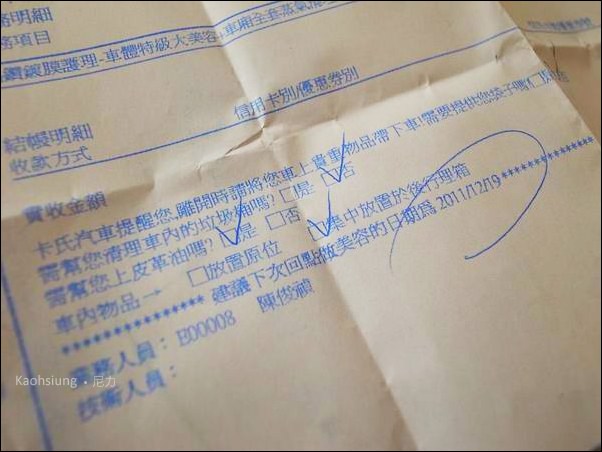 務明細
務項目
鍍膜護理-車體特級大美容+車廂全套蒸氣
信用卡別/優惠券別
結帳明細
收款方式
實收金額
卡氏汽車提醒您,離開時請將您車上貴重物品帶下車!需要提供您袋子嗎?□
需幫您清理車內的垃圾桶嗎? □是 □否
需幫您上皮革油嗎? □是 □否
車內物品→ □放置原位 □集中放置於後行理箱
*************** 建議下次回點做美容的日期為 2011/12/19***************
業務人員： E00008 陳俊禎
技術人員：
Kaohsiung ‧尼力